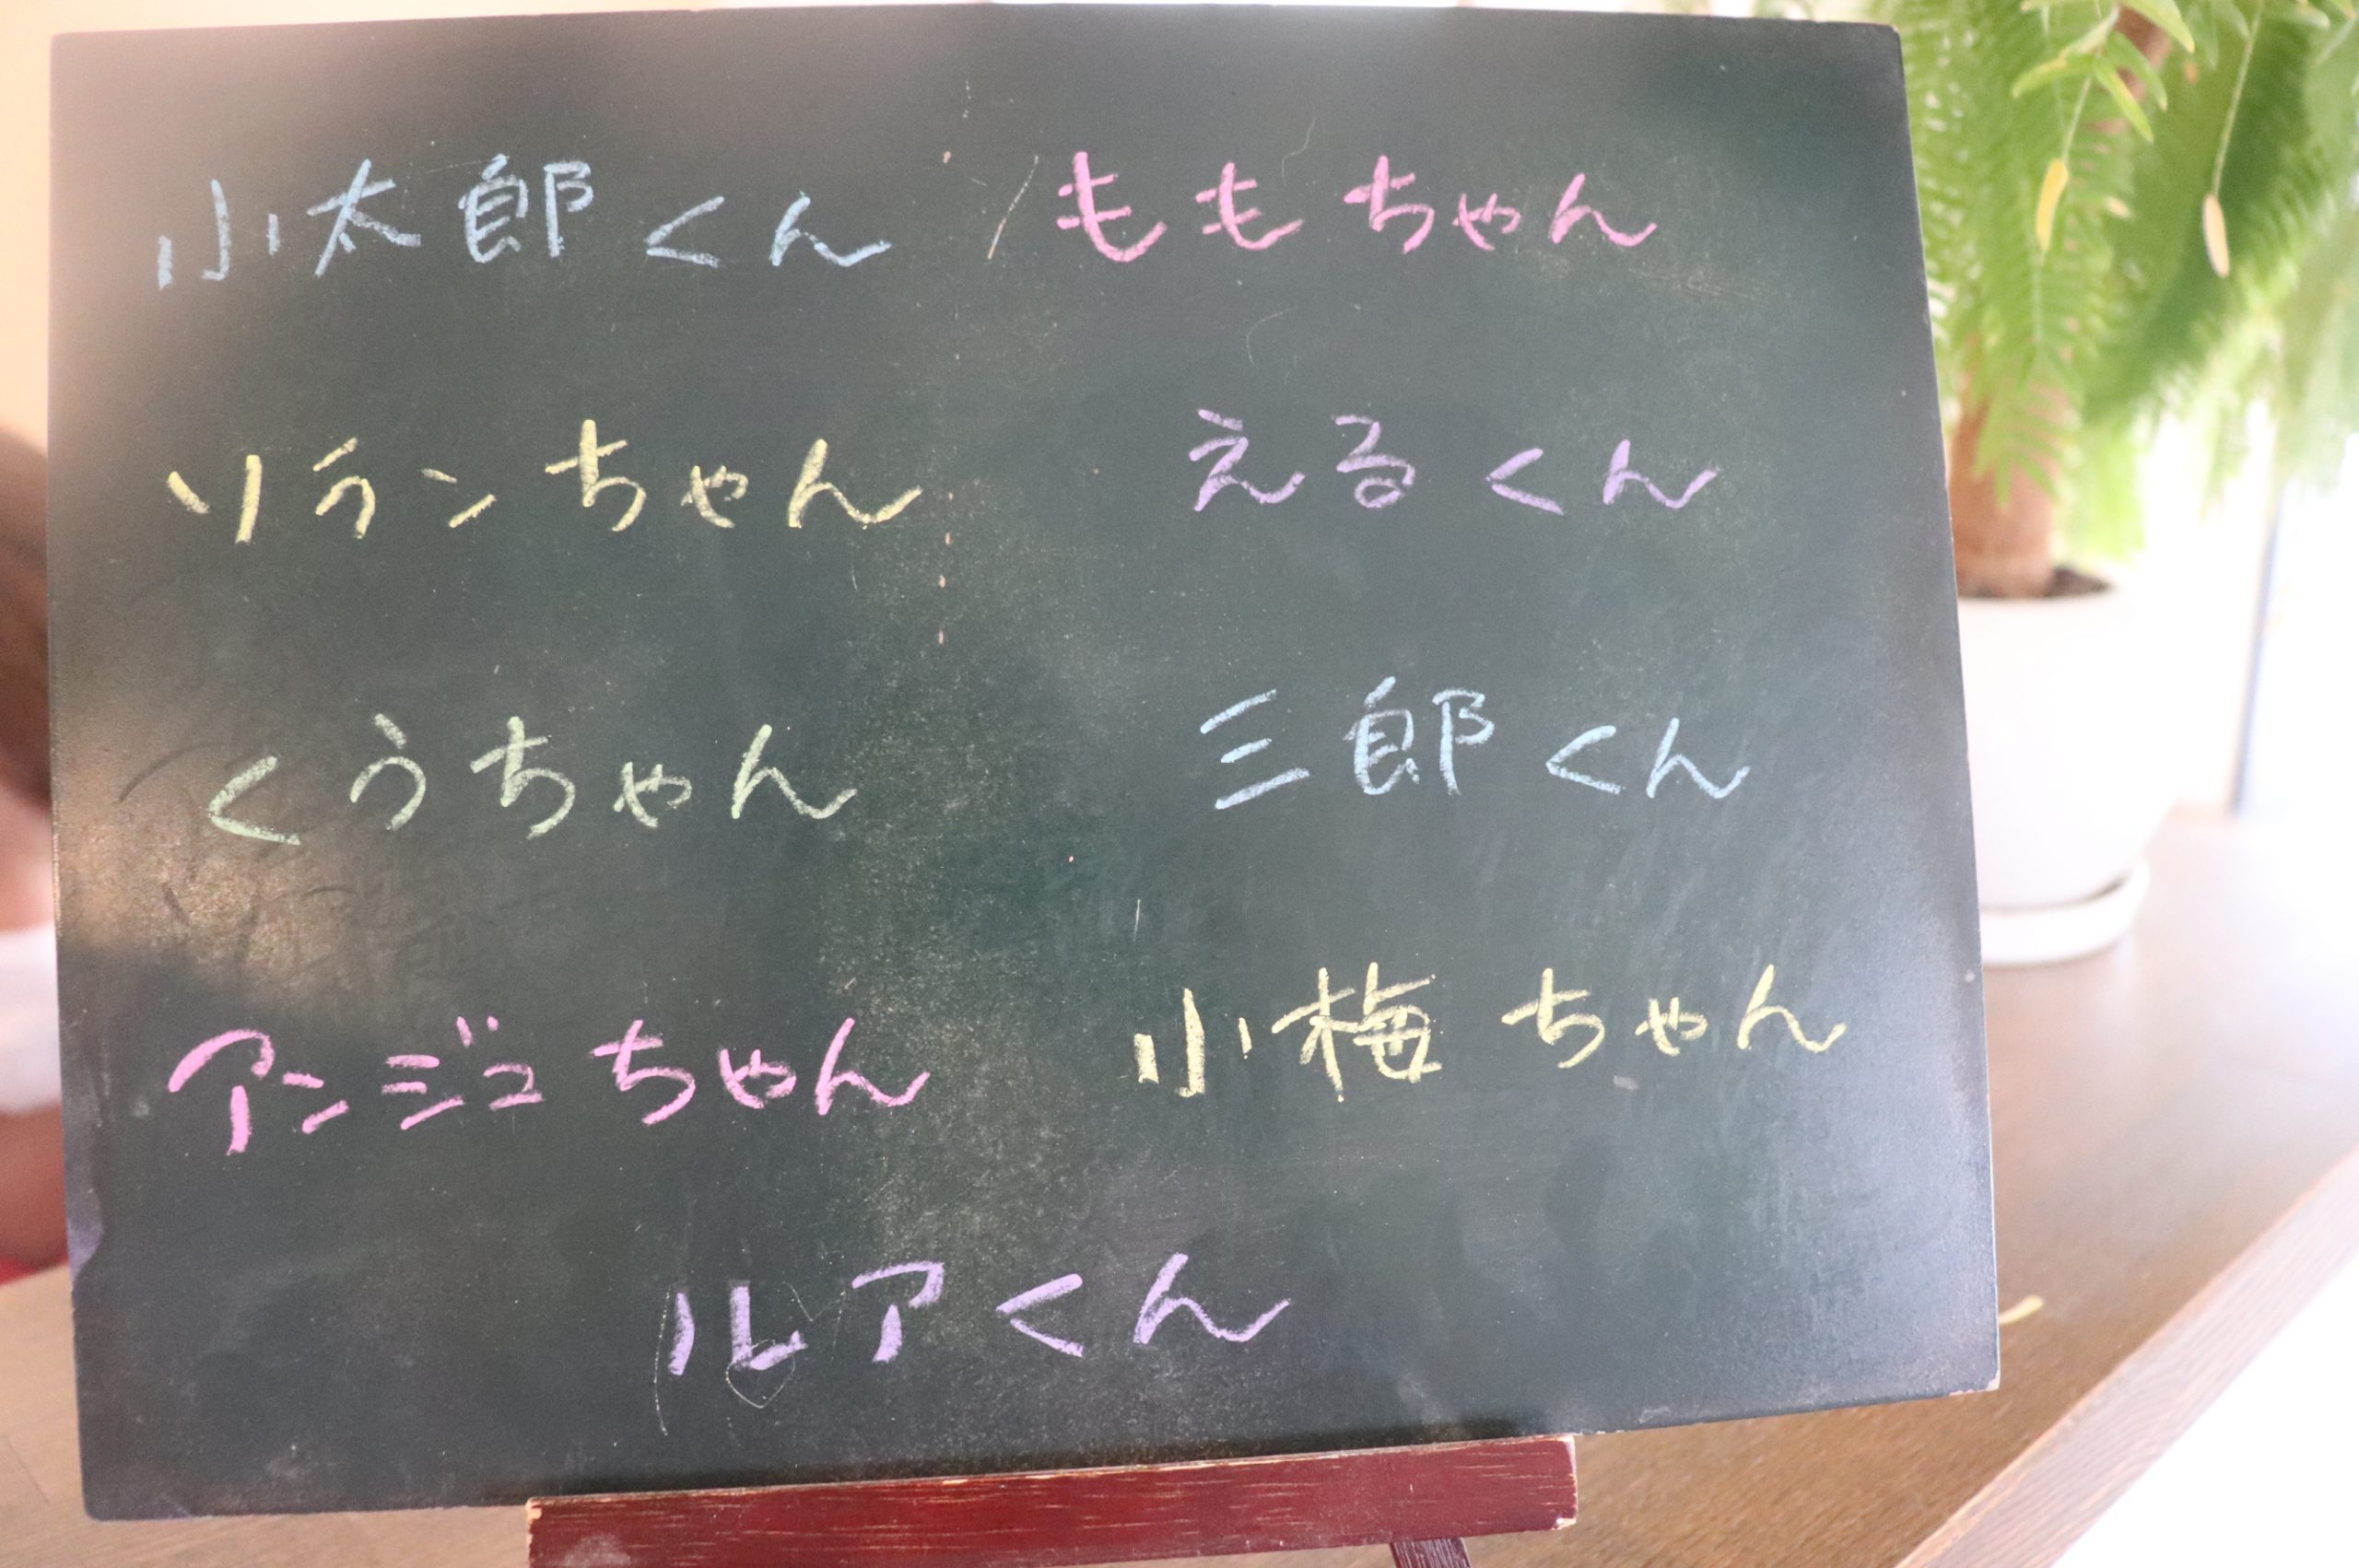 小太郎くん ももちゃん
ソランちゃん えるくん
くうちゃん 三郎くん
アンジュちゃん 小梅ちゃん
ルアくん